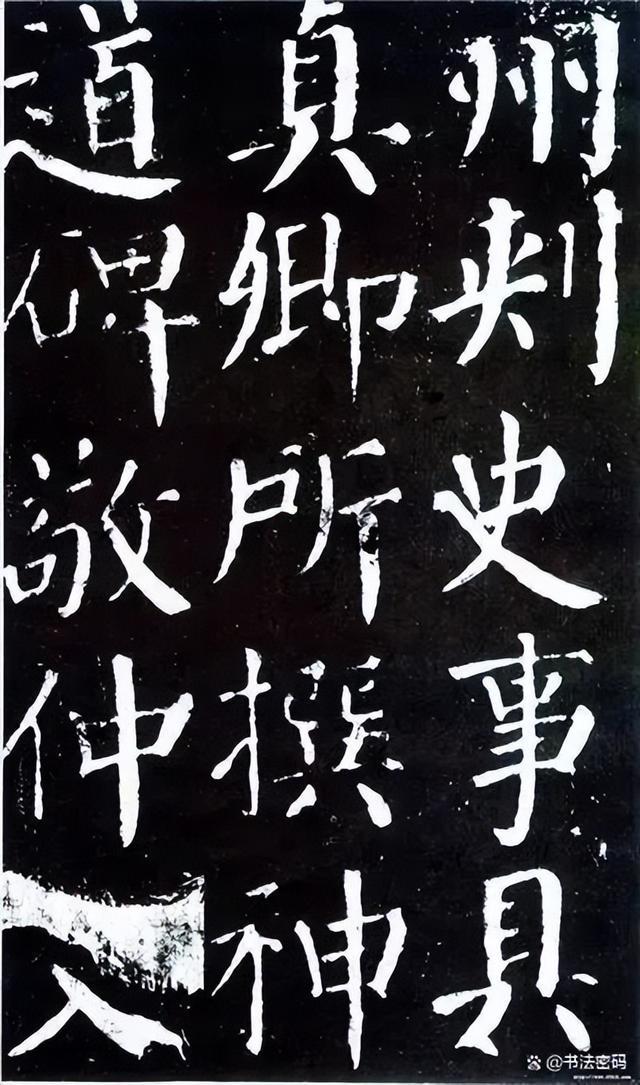 州刺史事具
真卿所撰神
道碑敬仲
入
@书法密码